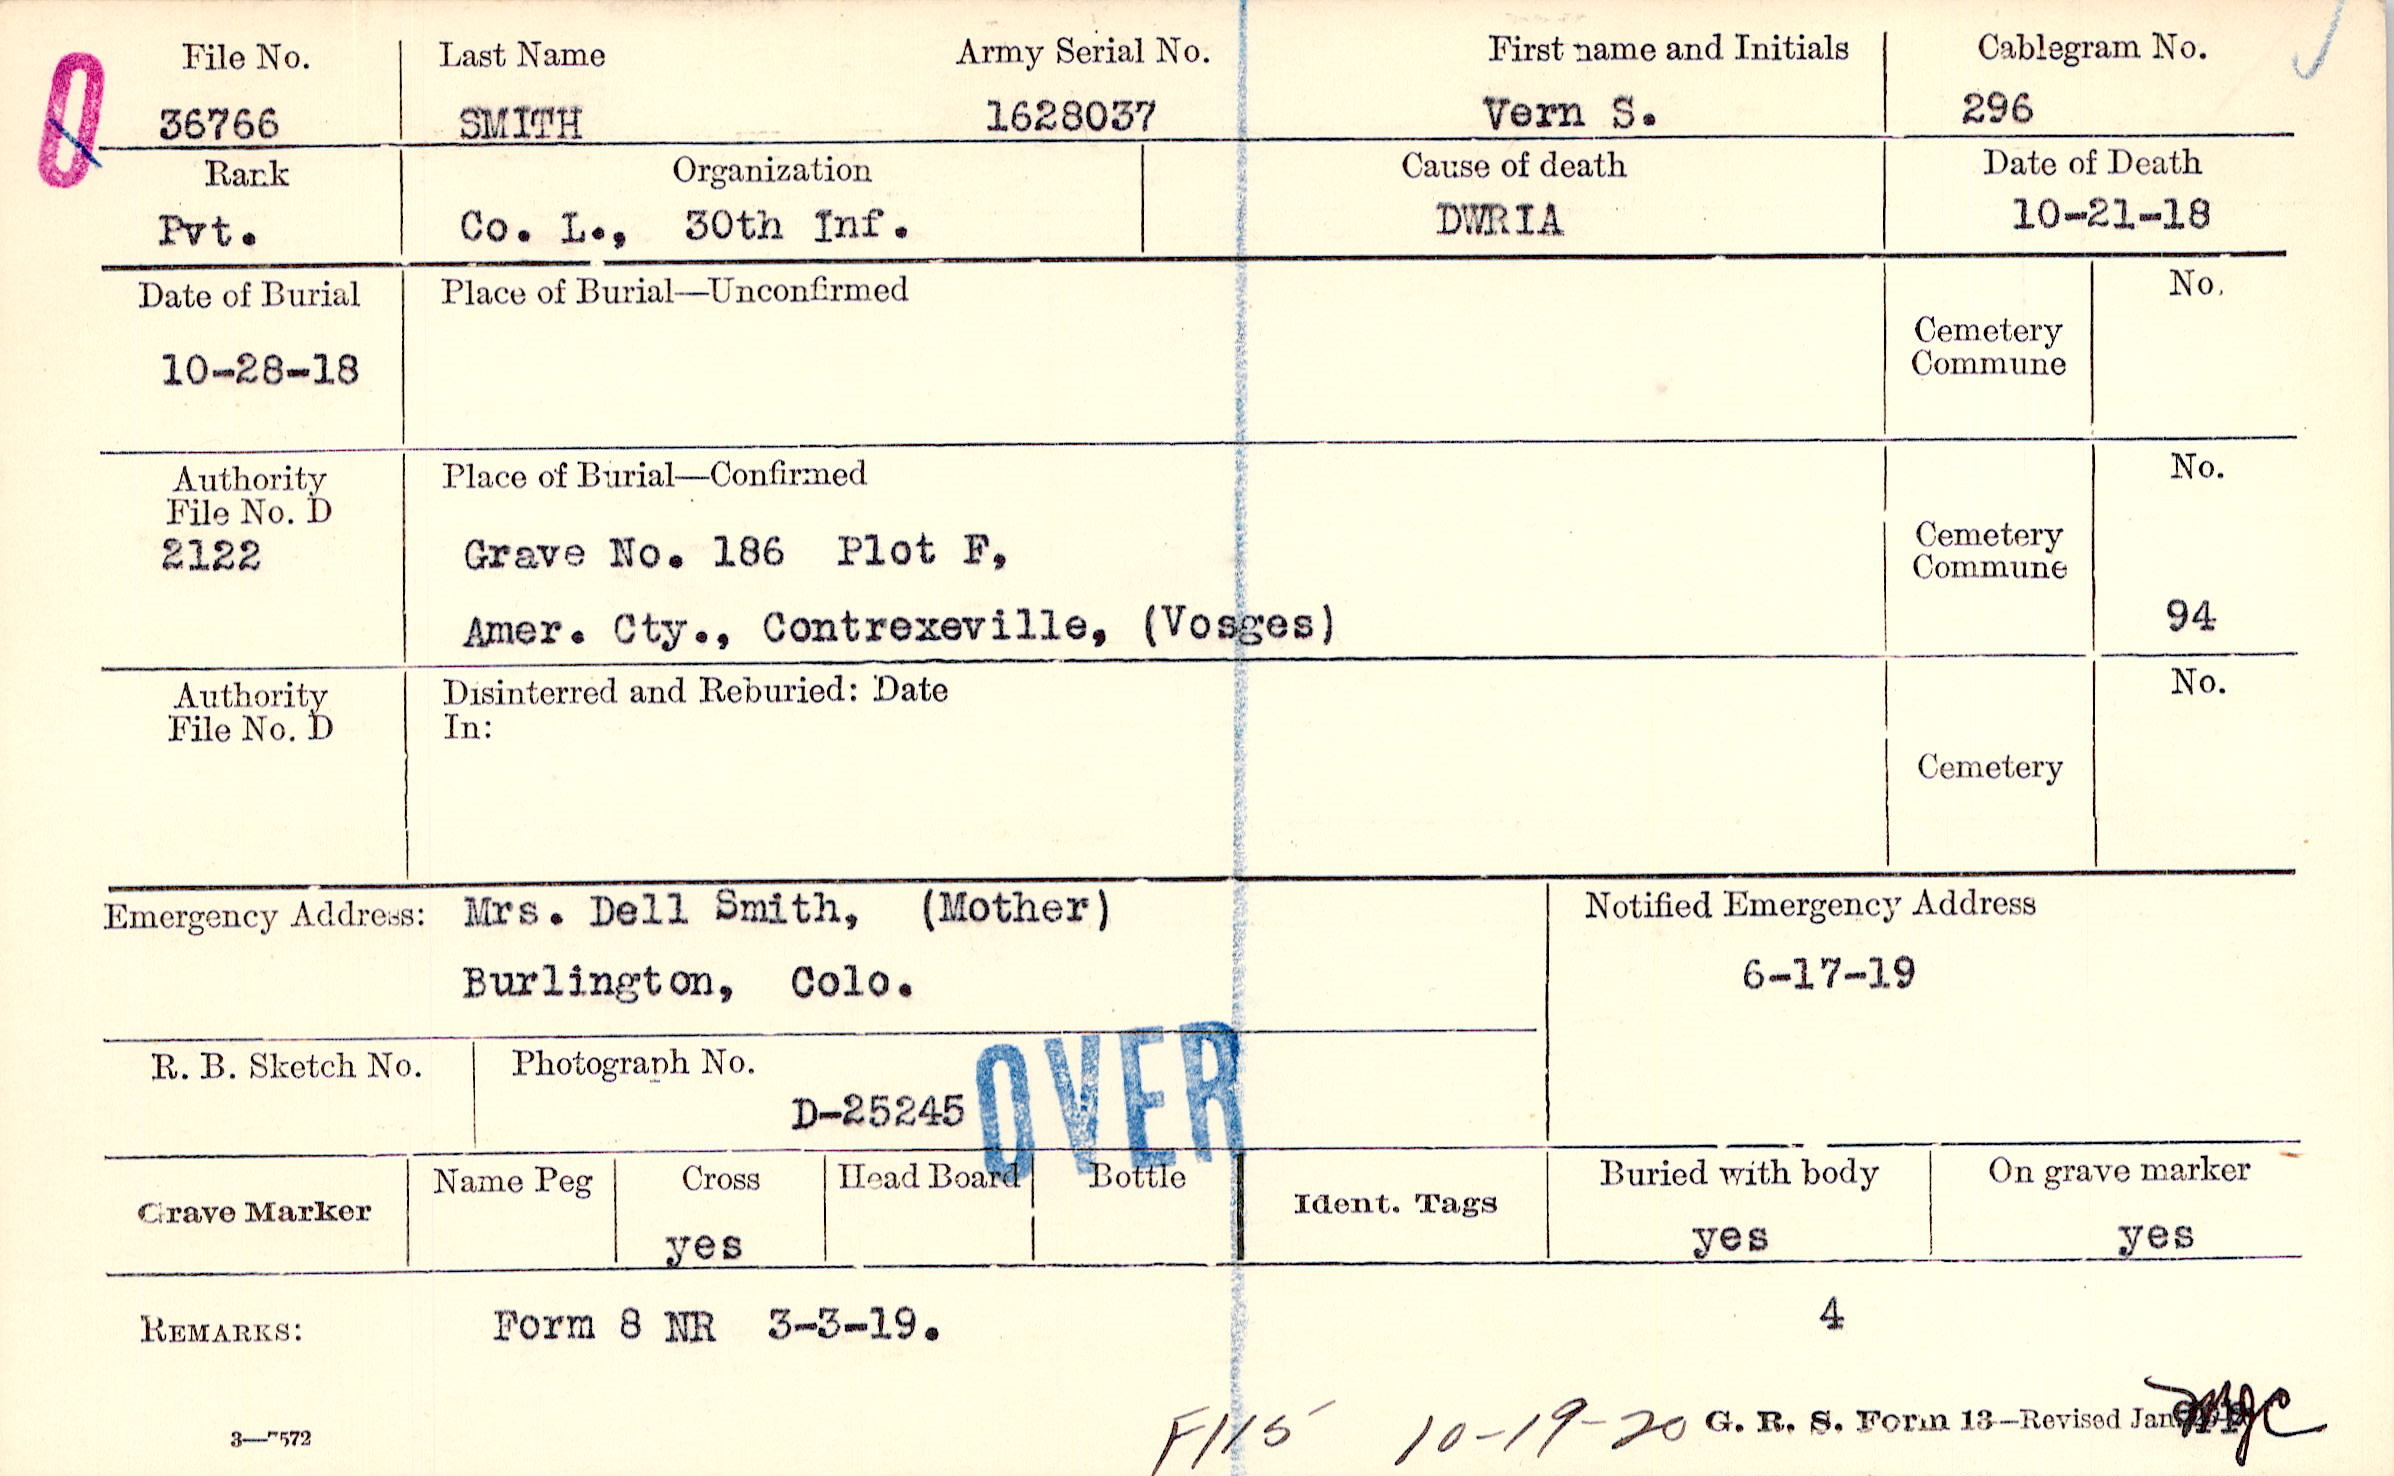 File No. Last Name Army Serial No. First name and Initials Cablegram No.
36766 SMITH 1628037 Vern S. 296
Rank Organization Cause of death Date of Death
Pvt. Co. L., 30th Inf. DWRIA 10-21-18
Date of Burial Place of Burial—Unconfirmed No.
10-28-18
Cemetery
Commune
Authority Place of Burial—Confirmed No.
File No. D
2122 Grave No. 186 Plot F,
Cemetery
Commune
Amer. Cty., Contrexeville, (Vosges) 94
Authority Disinterred and Reburied: Date No.
File No. D In:
Cemetery
Emergency Address: Mrs. Dell Smith, (Mother) Notified Emergency Address
Burlington, Colo. 6-17-19
R. B. Sketch No. Photograph No.
D-25245 OVER
Grave Marker Name Peg Cross Head Board Bottle Ident. Tags Buried with body On grave marker
yes yes yes
REMARKS: Form 8 NR 3-3-19. 4
3—7572 F115 10-19-20 G. R. S. Form 13—Revised Jan